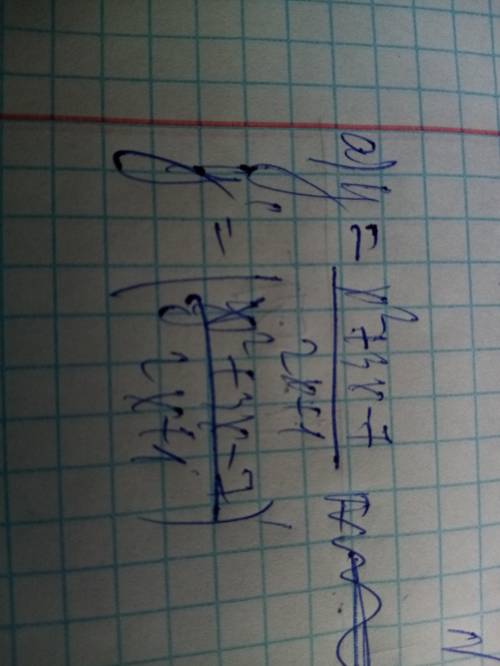 a) y = \frac{x^2+3x-7}{2x+1}
y' = \left(\frac{x^2+3x-7}{2x+1}\right)